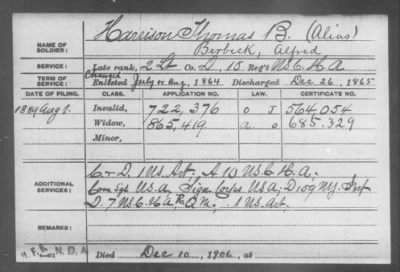 Harrison Thomas B. (Alias)
NAME OF SOLDIER: Berbeck, Alfred
SERVICE: Late rank, 2 Lt Co. D, 15 Reg't U.S.C.H.A.
TERM OF SERVICE: Enlisted July or Aug, 1864 Discharged Dec 26, 1865
DATE OF FILING. CLASS. APPLICATION NO. LAW. CERTIFICATE NO.
1889 Aug 1. Invalid, 722,376 O J 564.054
Widow, 865,419. a o 685.329
Minor,
C & D. 1 U.S. Art, A 10 U.S.C.H.A.,
ADDITIONAL SERVICES: Com Sgt U.S.A, Sign Corps U.S.A, D 109 N.Y. Inf
D. 7 U.S.C.H.A. Q.M. 1 U.S. Art.
REMARKS:
N.D.A.
Died Dec 10, 1906, at